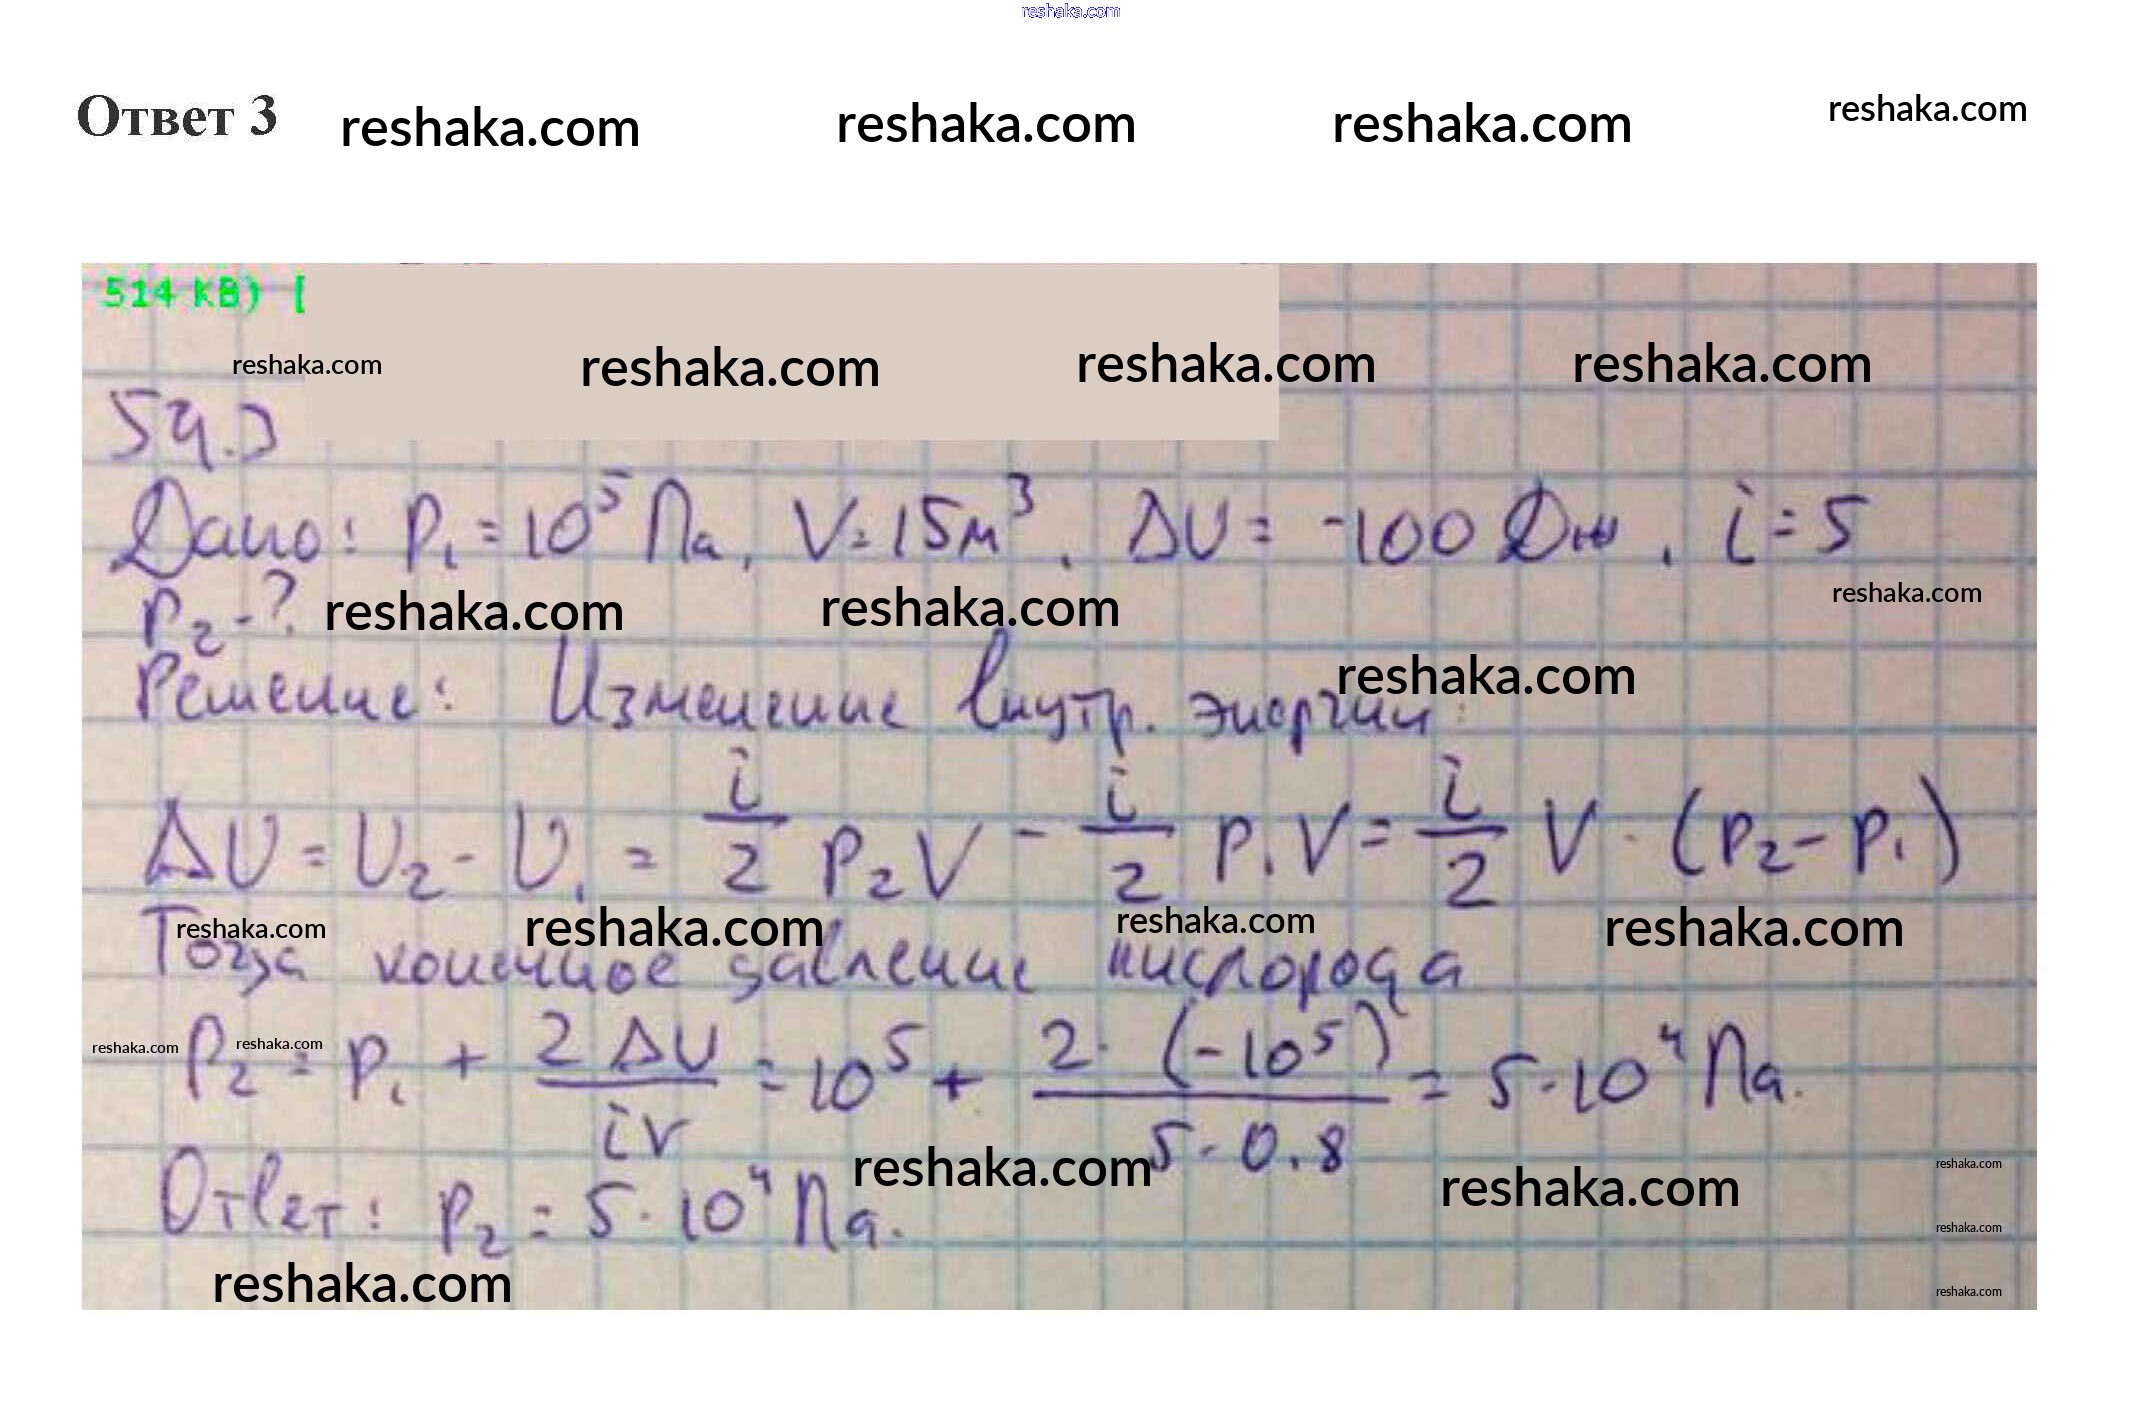 reshaka.com
Ответ 3 reshaka.com reshaka.com reshaka.com reshaka.com
514 KB) [
reshaka.com reshaka.com reshaka.com reshaka.com
§4.3
Дано: p₁ = 10⁵ Па, V = 15 м³, ΔU = -100 Дж, i = 5
reshaka.com
p₂ - ? reshaka.com reshaka.com
reshaka.com
Решение: Изменение внутр. энергии:
ΔU = U₂ - U₁ = i/2 p₂V - i/2 p₁V = i/2 V · (p₂ - p₁)
reshaka.com reshaka.com reshaka.com reshaka.com
Тогда конечное давление кислорода
reshaka.com reshaka.com
p₂ = p₁ + 2ΔU/iV = 10⁵ + 2·(-10⁵)/5·0.8 = 5·10⁴ Па.
reshaka.com reshaka.com reshaka.com
Ответ: p₂ = 5·10⁴ Па.
reshaka.com
reshaka.com reshaka.com